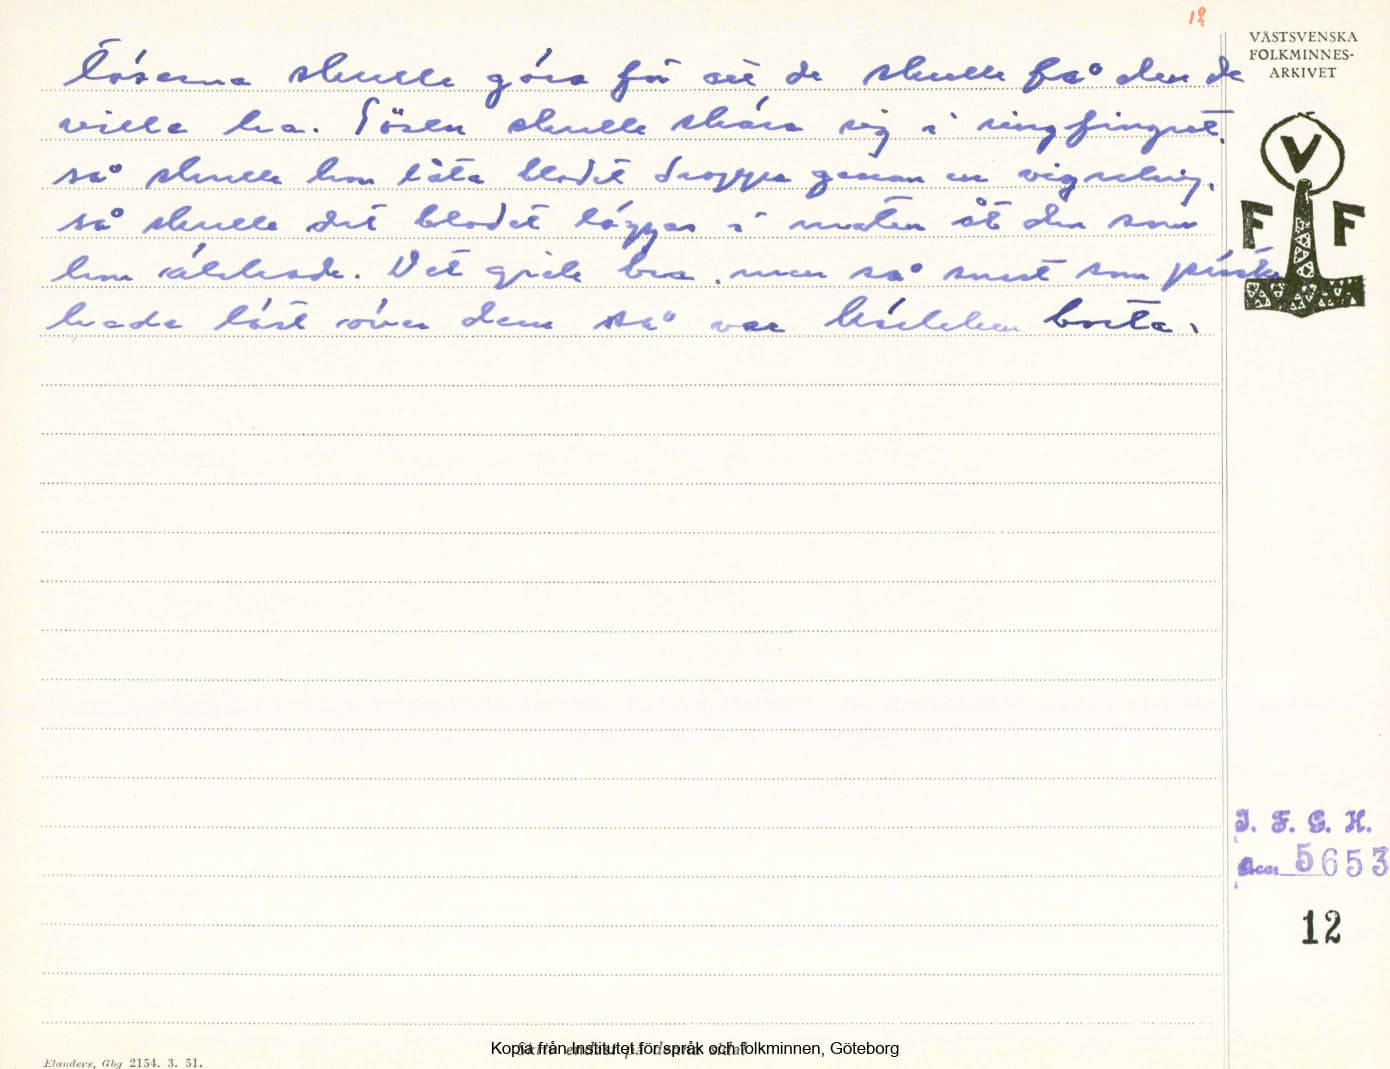 12
VÄSTSVENSKA
FOLKMINNES-
ARKIVET
Töserna skulle göra för att de skulle få den de
ville ha. Tösen skulle skära sig i ringfingret,
så skulle hon låta blodet droppa genom en vigselring,
så skulle det blodet läggas i maten åt den som
hon älskade. Det gick bra, men så snart som präste
hade läst över dem så var kärleken borta.
V
F F
I. F. G. H.
Acc. 5653
12
Kopia från Institutet för språk och folkminnen, Göteborg
Elanders, Gbg 2154. 3. 51.